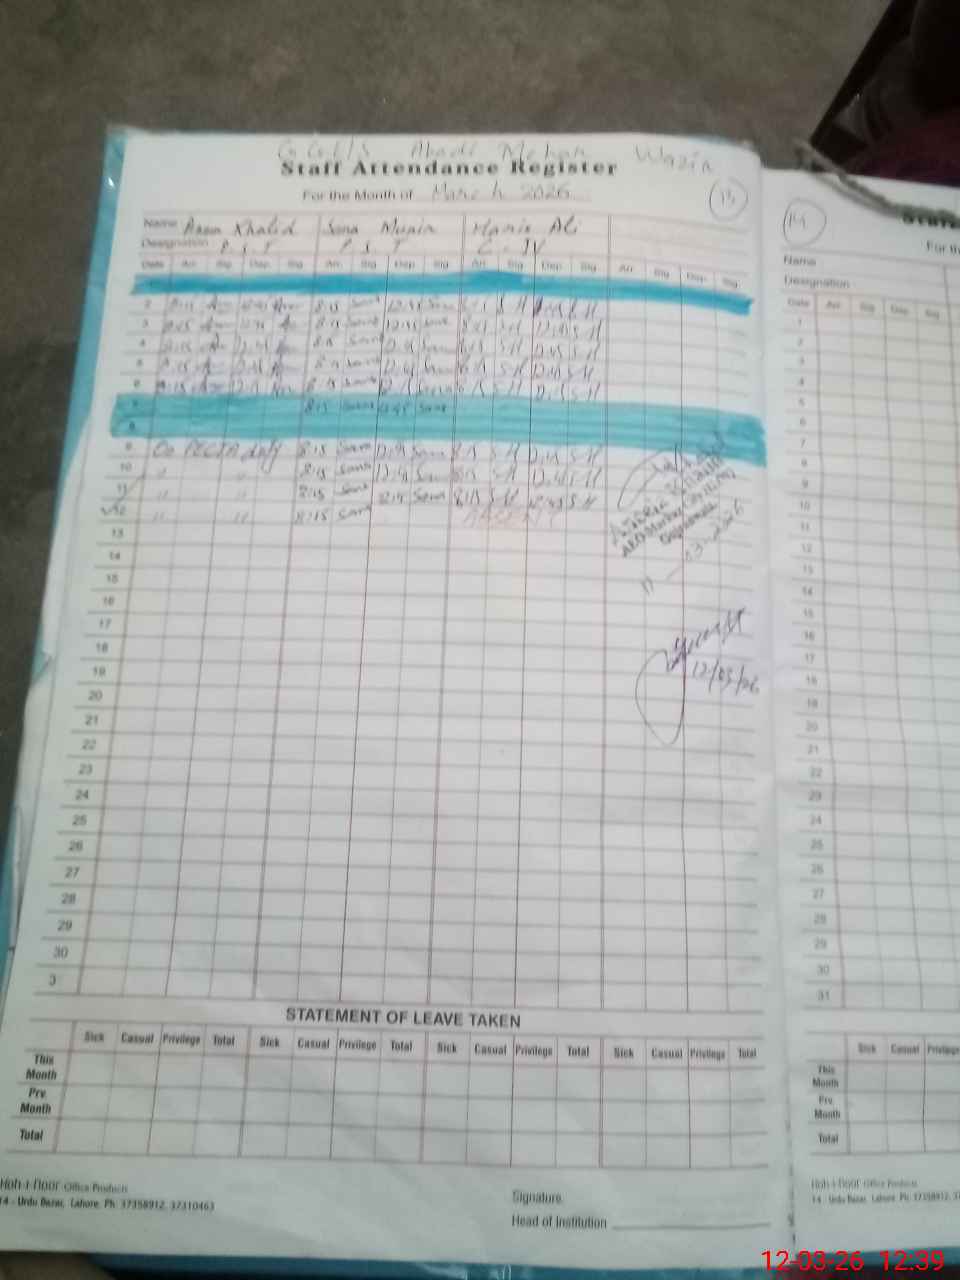 Staff Attendance Register
Wazir
For the Month of March 2026
13
Name Khalid Sana Munir Haris Ali
Designation P.S.T P.S.T C-IV
Date Arr. Sig. Dep. Sig. Arr. Sig. Dep. Sig. Arr. Sig. Dep. Sig. Arr. Sig. Dep. Sig.
2 8:15 12:45 8:15 Sana 12:45 Sana 8:15 S-H 12:45 S-H
3 8:15 12:45 8:15 Sana 12:45 Sana 8:15 S-H 12:45 S-H
4 8:15 12:45 8:15 Sana 12:45 Sana 8:15 S-H 12:45 S-H
5 8:15 12:45 8:15 Sana 12:45 Sana 8:15 S-H 12:45 S-H
6 8:15 12:15 8:15 Sana 12:15 Sana 8:15 S-H 12:15 S-H
7 8:15 Sana 12:45 Sana
8
9 On PECTA duty 8:15 Sana 12:45 Sana 8:15 S-H 12:45 S-H
10 " " 8:15 Sana 12:45 Sana 8:15 S-H 12:45 S-H
11 " " 8:15 Sana 12:45 Sana 8:15 S-H 12:45 S-H
12 " " 8:15 Sana ABSENT
AEO Markaz
Gujranwala
11-03-2026
12/03/26
13
14
15
16
17
18
19
20
21
22
23
24
25
26
27
28
29
30
3
STATEMENT OF LEAVE TAKEN
Sick Casual Privilege Total Sick Casual Privilege Total Sick Casual Privilege Total Sick Casual Privilege Total
This Month
Prv. Month
Total
Koh-i-Noor Office Products
14 - Urdu Bazar, Lahore. Ph: 37358912, 37310463
Signature.
Head of Institution
14
For th
Name
Designation
Date Arr. Sig. Dep. Sig.
1
2
3
4
5
6
7
8
9
10
11
12
13
14
15
16
17
18
19
20
21
22
23
24
25
26
27
28
29
30
31
Sick Casual Privilege
This Month
Prv. Month
Total
Koh-i-Noor Office Products
14 - Urdu Bazar, Lahore. Ph: 37358912, 3
12-03-26 12:39